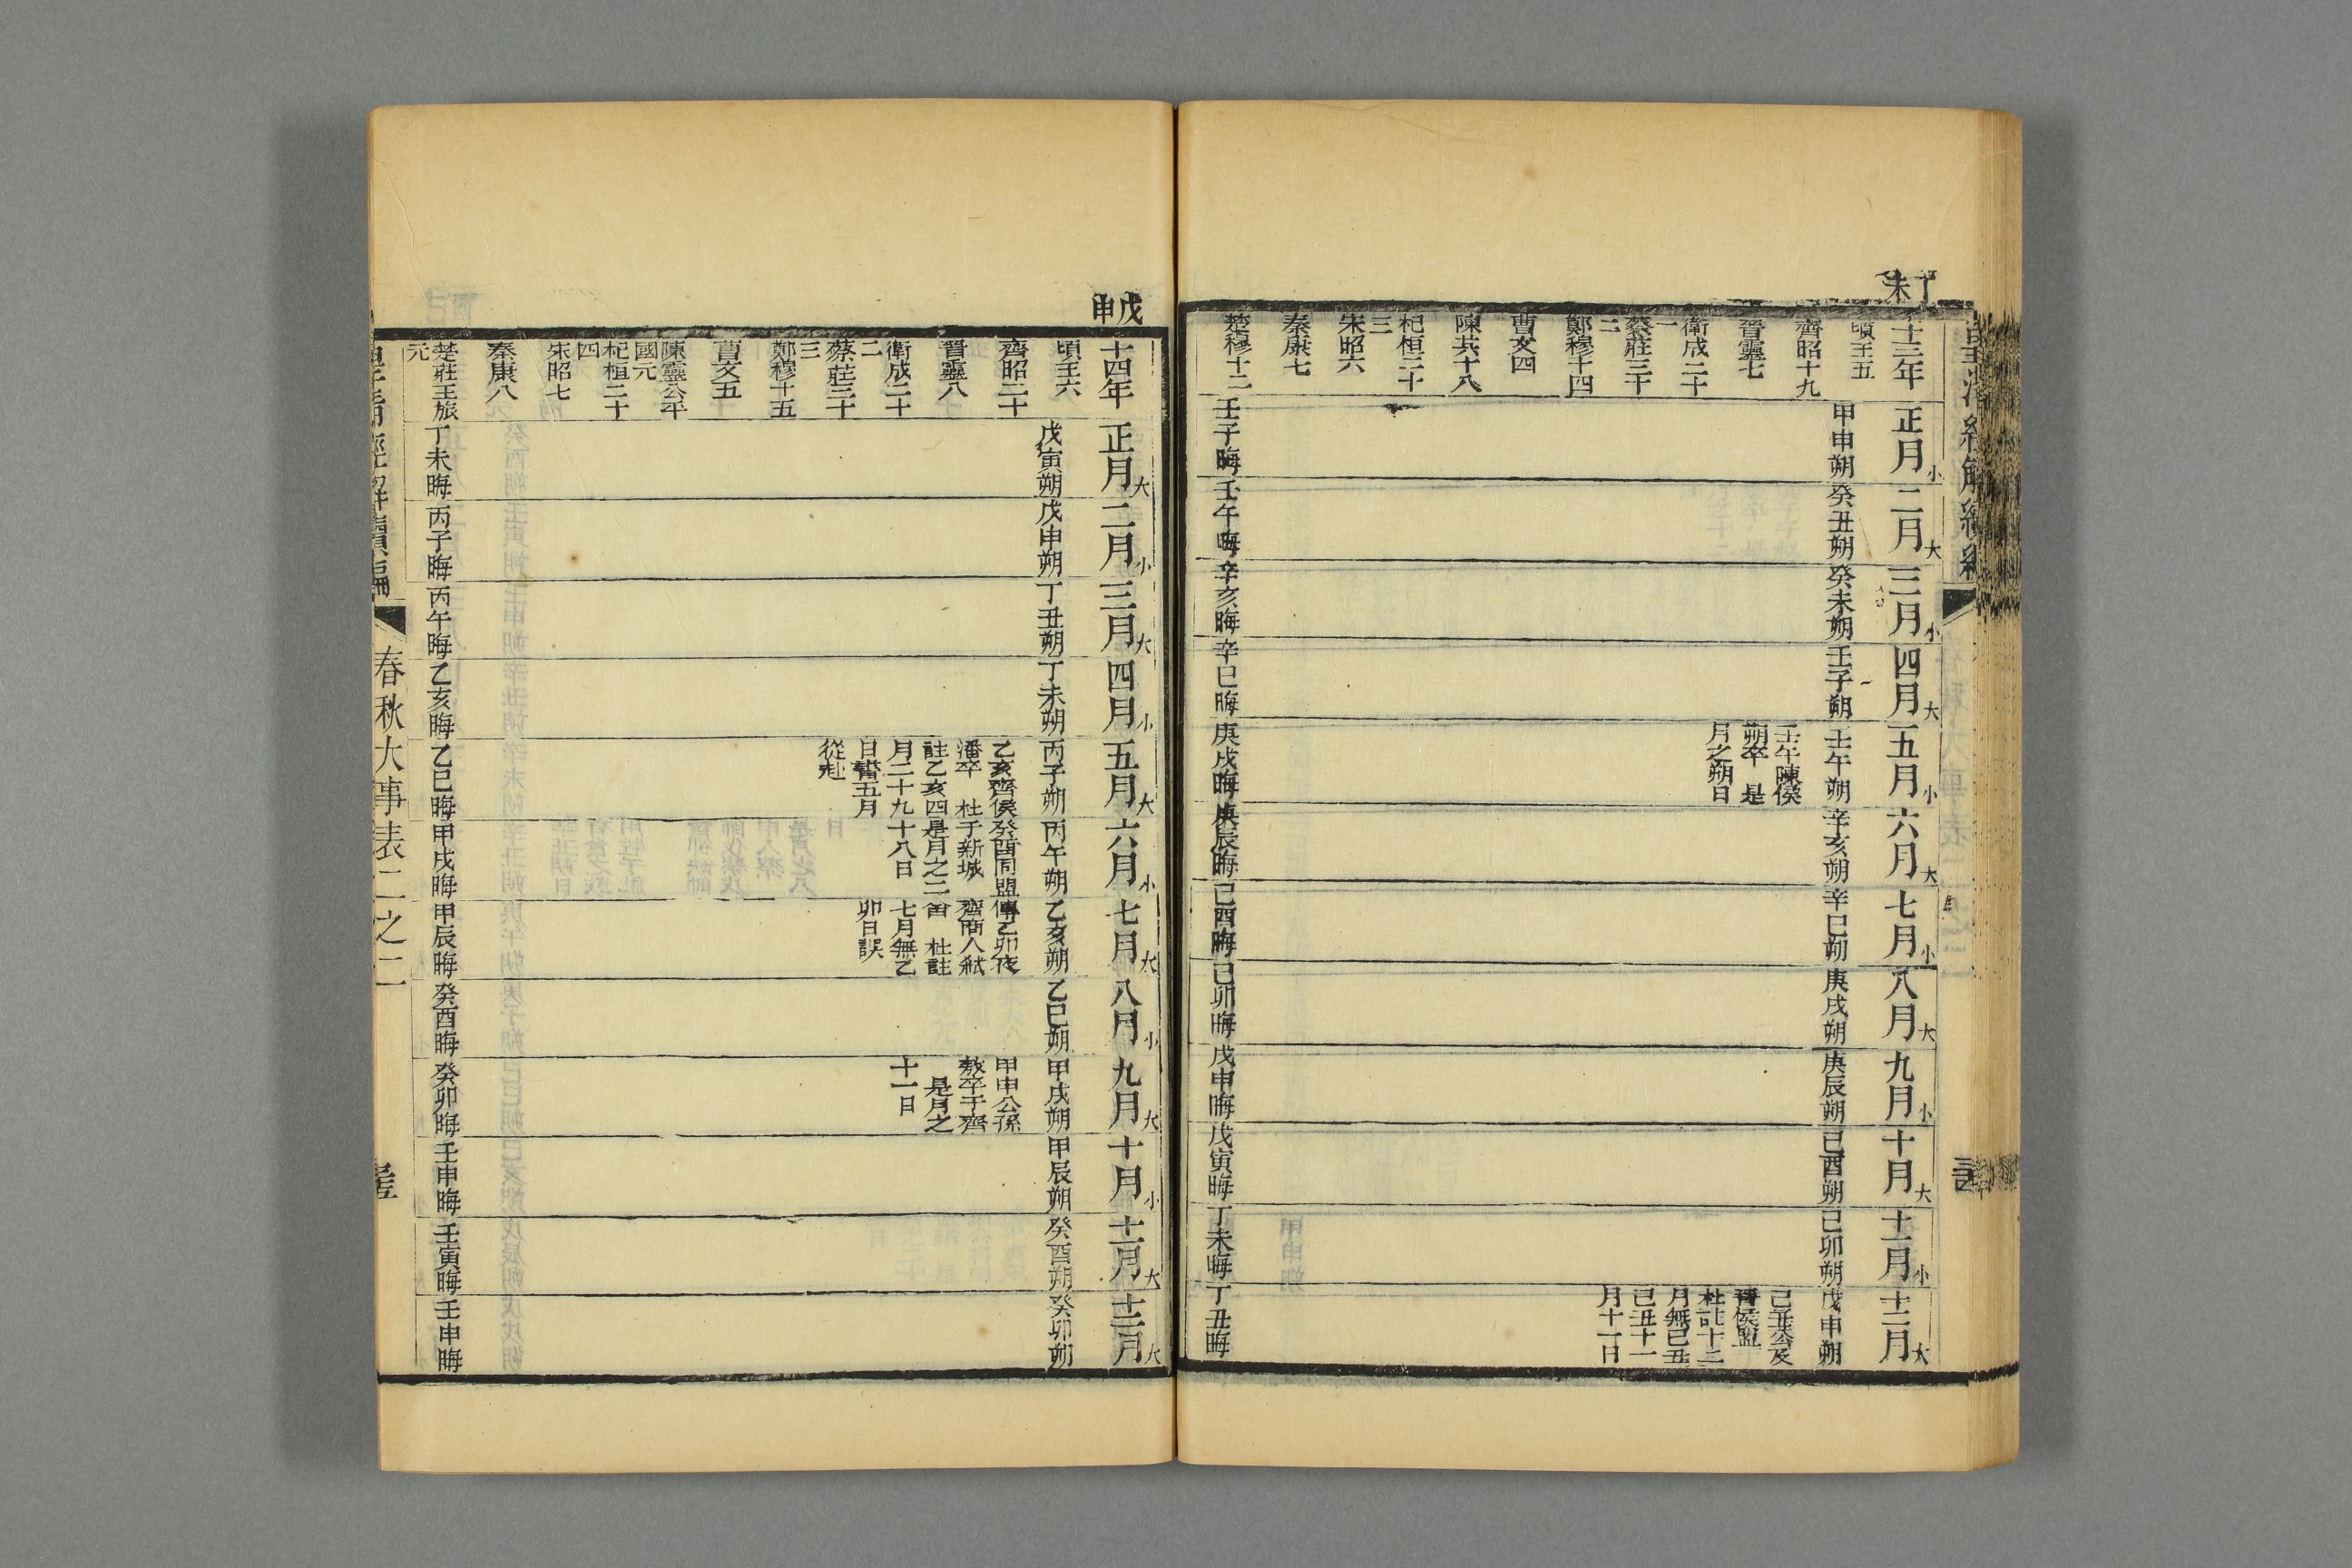 丁未
十三年
頃王五
齊昭十九
晉靈七
衛成二十
一
蔡莊三十
二
鄭穆十四
曹文四
陳共十八
杞桓二十
三
宋昭六
秦康七
楚穆十二
正月小
甲申朔
壬子晦
二月大
癸丑朔
壬午晦
三月小
癸未朔
辛亥晦
四月大
壬子朔
辛巳晦
五月小
壬午朔
壬午陳侯
朔卒 是
月之朔日
庚戌晦
六月大
辛亥朔
庚辰晦
七月小
辛巳朔
己酉晦
八月大
庚戌朔
己卯晦
九月小
庚辰朔
戊申晦
十月大
己酉朔
戊寅晦
十一月小
己卯朔
丁未晦
十二月大
戊申朔
己丑公及
晉侯盟
杜註十二
月無己丑
己丑十一
月十一日
丁丑晦
戊申
十四年
頃王六
齊昭二十
晉靈八
衛成二十
二
蔡莊三十
三
鄭穆十五
曹文五
陳靈公平
國元
杞桓二十
四
宋昭七
秦康八
楚莊王旅
元
正月大
戊寅朔
丁未晦
二月小
戊申朔
丙子晦
三月大
丁丑朔
丙午晦
四月小
丁未朔
乙亥晦
五月大
丙子朔
乙亥齊侯
潘卒 杜
註乙亥四
月二十九
日書五月
從赴
乙巳晦
六月小
丙午朔
癸酉同盟
于新城
是月之二
十八日
甲戌晦
七月大
乙亥朔
傳乙卯夜
齊商人弒
舍 杜註
七月無乙
卯日誤
甲辰晦
八月小
乙巳朔
癸酉晦
九月大
甲戌朔
甲申公孫
敖卒于齊
是月之
十一日
癸卯晦
十月小
甲辰朔
壬申晦
十一月大
癸酉朔
壬寅晦
十二月大
癸卯朔
壬申晦
皇清經解續編
春秋大事表二之二